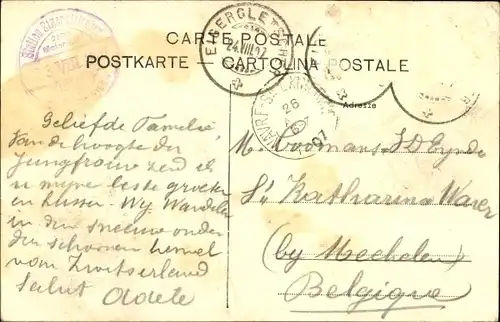 CARTE POSTALE
POSTKARTE – CARTOLINA POSTALE
EIGERGLETSCHER
24.VIII.07
WAVRE-Ste-CATHERINE
26
07
Adresse
Geliefde Familie,
Van de hoogte der
Jungfrau zend ik
u mijne beste groeten
en kussen. Wij wandelen
in den sneeuw onder
den schoonen hemel
van Zwitserland
Salut Adele
Mr Cooymans
St Katharina Waver
(by Mechelen)
Belgique